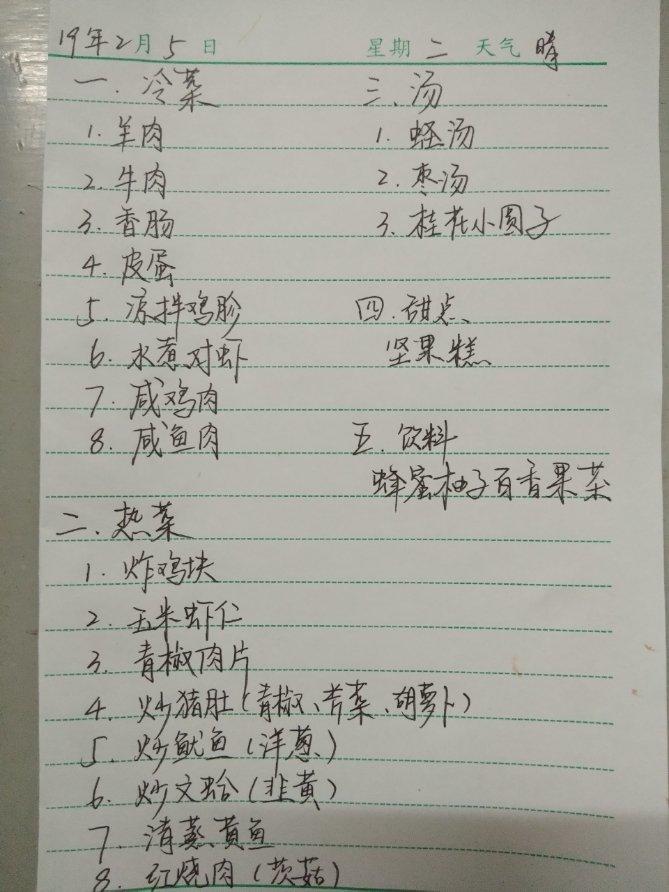 19年2月5日 星期二 天气 晴
一.冷菜
1.羊肉
2.牛肉
3.香肠
4.皮蛋
5.凉拌鸡胗
6.水煮对虾
7.咸鸡肉
8.咸鱼肉
二.热菜
1.炸鸡块
2.玉米虾仁
3.青椒肉片
4.炒猪肚(青椒、芹菜、胡萝卜)
5.炒鱿鱼(洋葱)
6.炒文蛤(韭黄)
7.清蒸黄鱼
8.红烧肉(茨菇)
三.汤
1.蛏汤
2.枣汤
3.桂花小圆子
四.甜点
坚果糕
五.饮料
蜂蜜柚子百香果茶